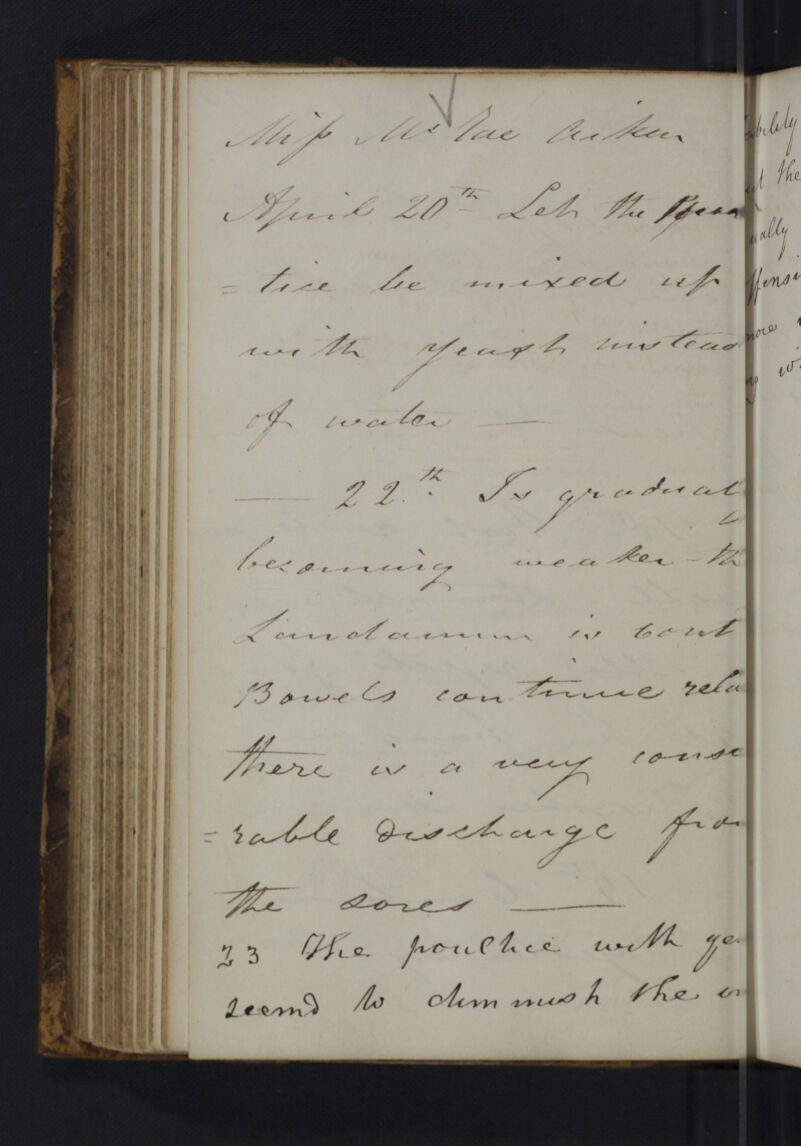 Miss
April 20th Let the
=tice be mixed up
with yeast instead
of water —
— 22.th Is gradual
becoming weaker - th
Laudanum is cont
Bowels continue rela
there is a very conse
=rable discharge fro
the sores —
23 The poultice with ye
seemd to diminish the
the
ually
ffensi
more